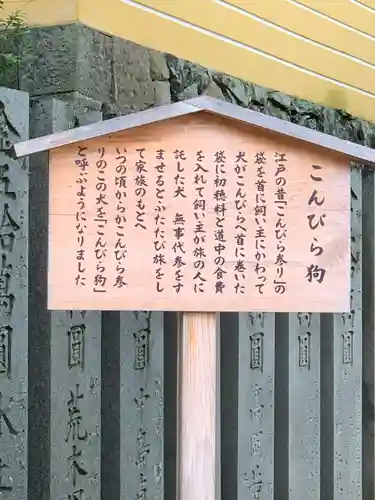 こんぴら狗
江戸の昔「こんぴら参り」の
袋を首に飼い主にかわって
犬がこんぴらへ首に巻いた
袋に初穂料と道中の食費
を入れて飼い主が旅の人に
託した犬　無事代参をす
ませるとふたたび旅をし
て家族のもとへ
いつの頃からかこんぴら参
りのこの犬を「こんぴら狗」
と呼ぶようになりました
金五拾萬円
円
荒木
円
中
円
円
円